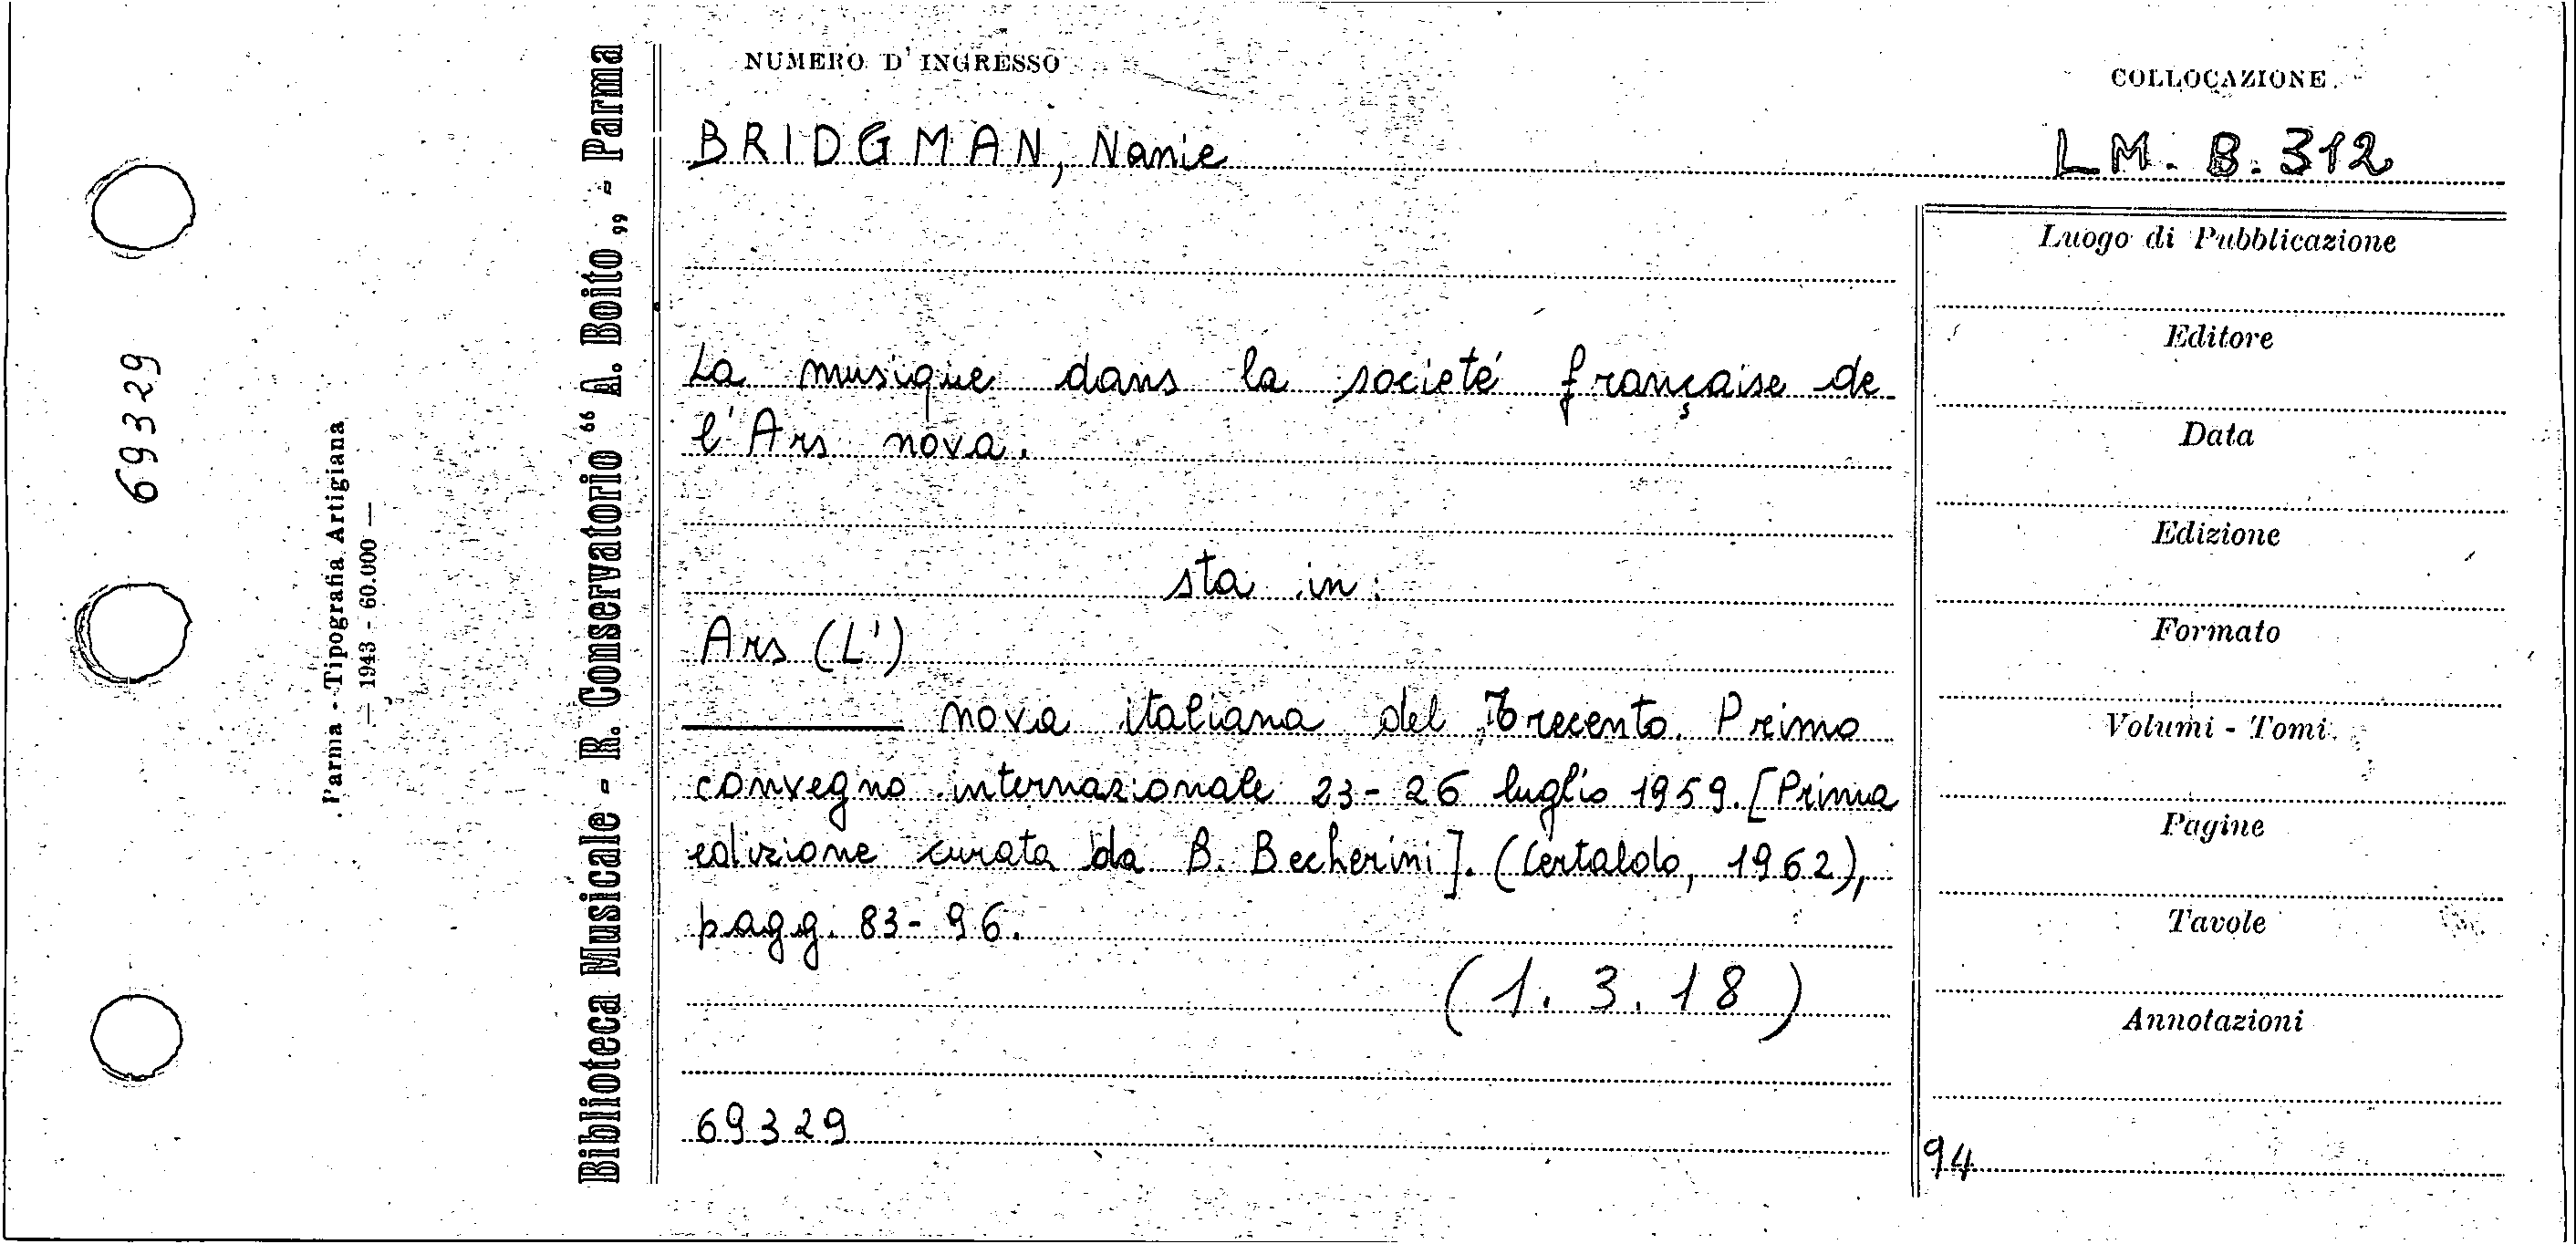 69329
Parma - Tipografia Artigiana
— 1943 - 60.000 —
Biblioteca Musicale - R. Conservatorio “ A. Boito „ - Parma
NUMERO D' INGRESSO
COLLOCAZIONE
BRIDGMAN, Nanie
LM. B. 312
La musique dans la societé française de
l'Ars nova.
sta in:
Ars (L')
——— nova italiana del Trecento. Primo
convegno internazionale 23-26 luglio 1959. [Prima
edizione curata da B. Becherini]. (Certaldo, 1962),
pagg. 83-96.
(1.3.18)
69329
Luogo di Pubblicazione
Editore
Data
Edizione
Formato
Volumi - Tomi
Pagine
Tavole
Annotazioni
94